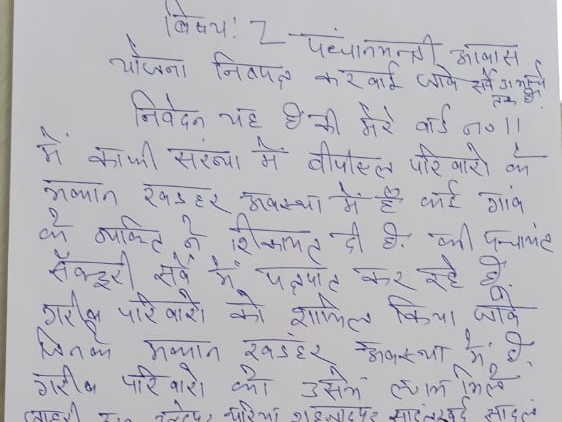 विषय:- प्रधानमन्त्री आवास
योजना निष्पक्ष करवाई जावे सर्वे
तक है.
निवेदन यह है की मेरे वार्ड न० 11
में काफी संख्या में बीपीएल परिवारो के
मकान खण्डहर अवस्था में है कई गांव
के व्यक्ति ने शिकायत दी है. की पन्चायत
सैक्ट्ररी सर्वे में पक्षपात कर रहे है.
गरीब परिवारो को शामिल किया जावे
जिनके मकान खडंहर अवस्था में है.
गरीब परिवारो को उसमें लाभ मिले